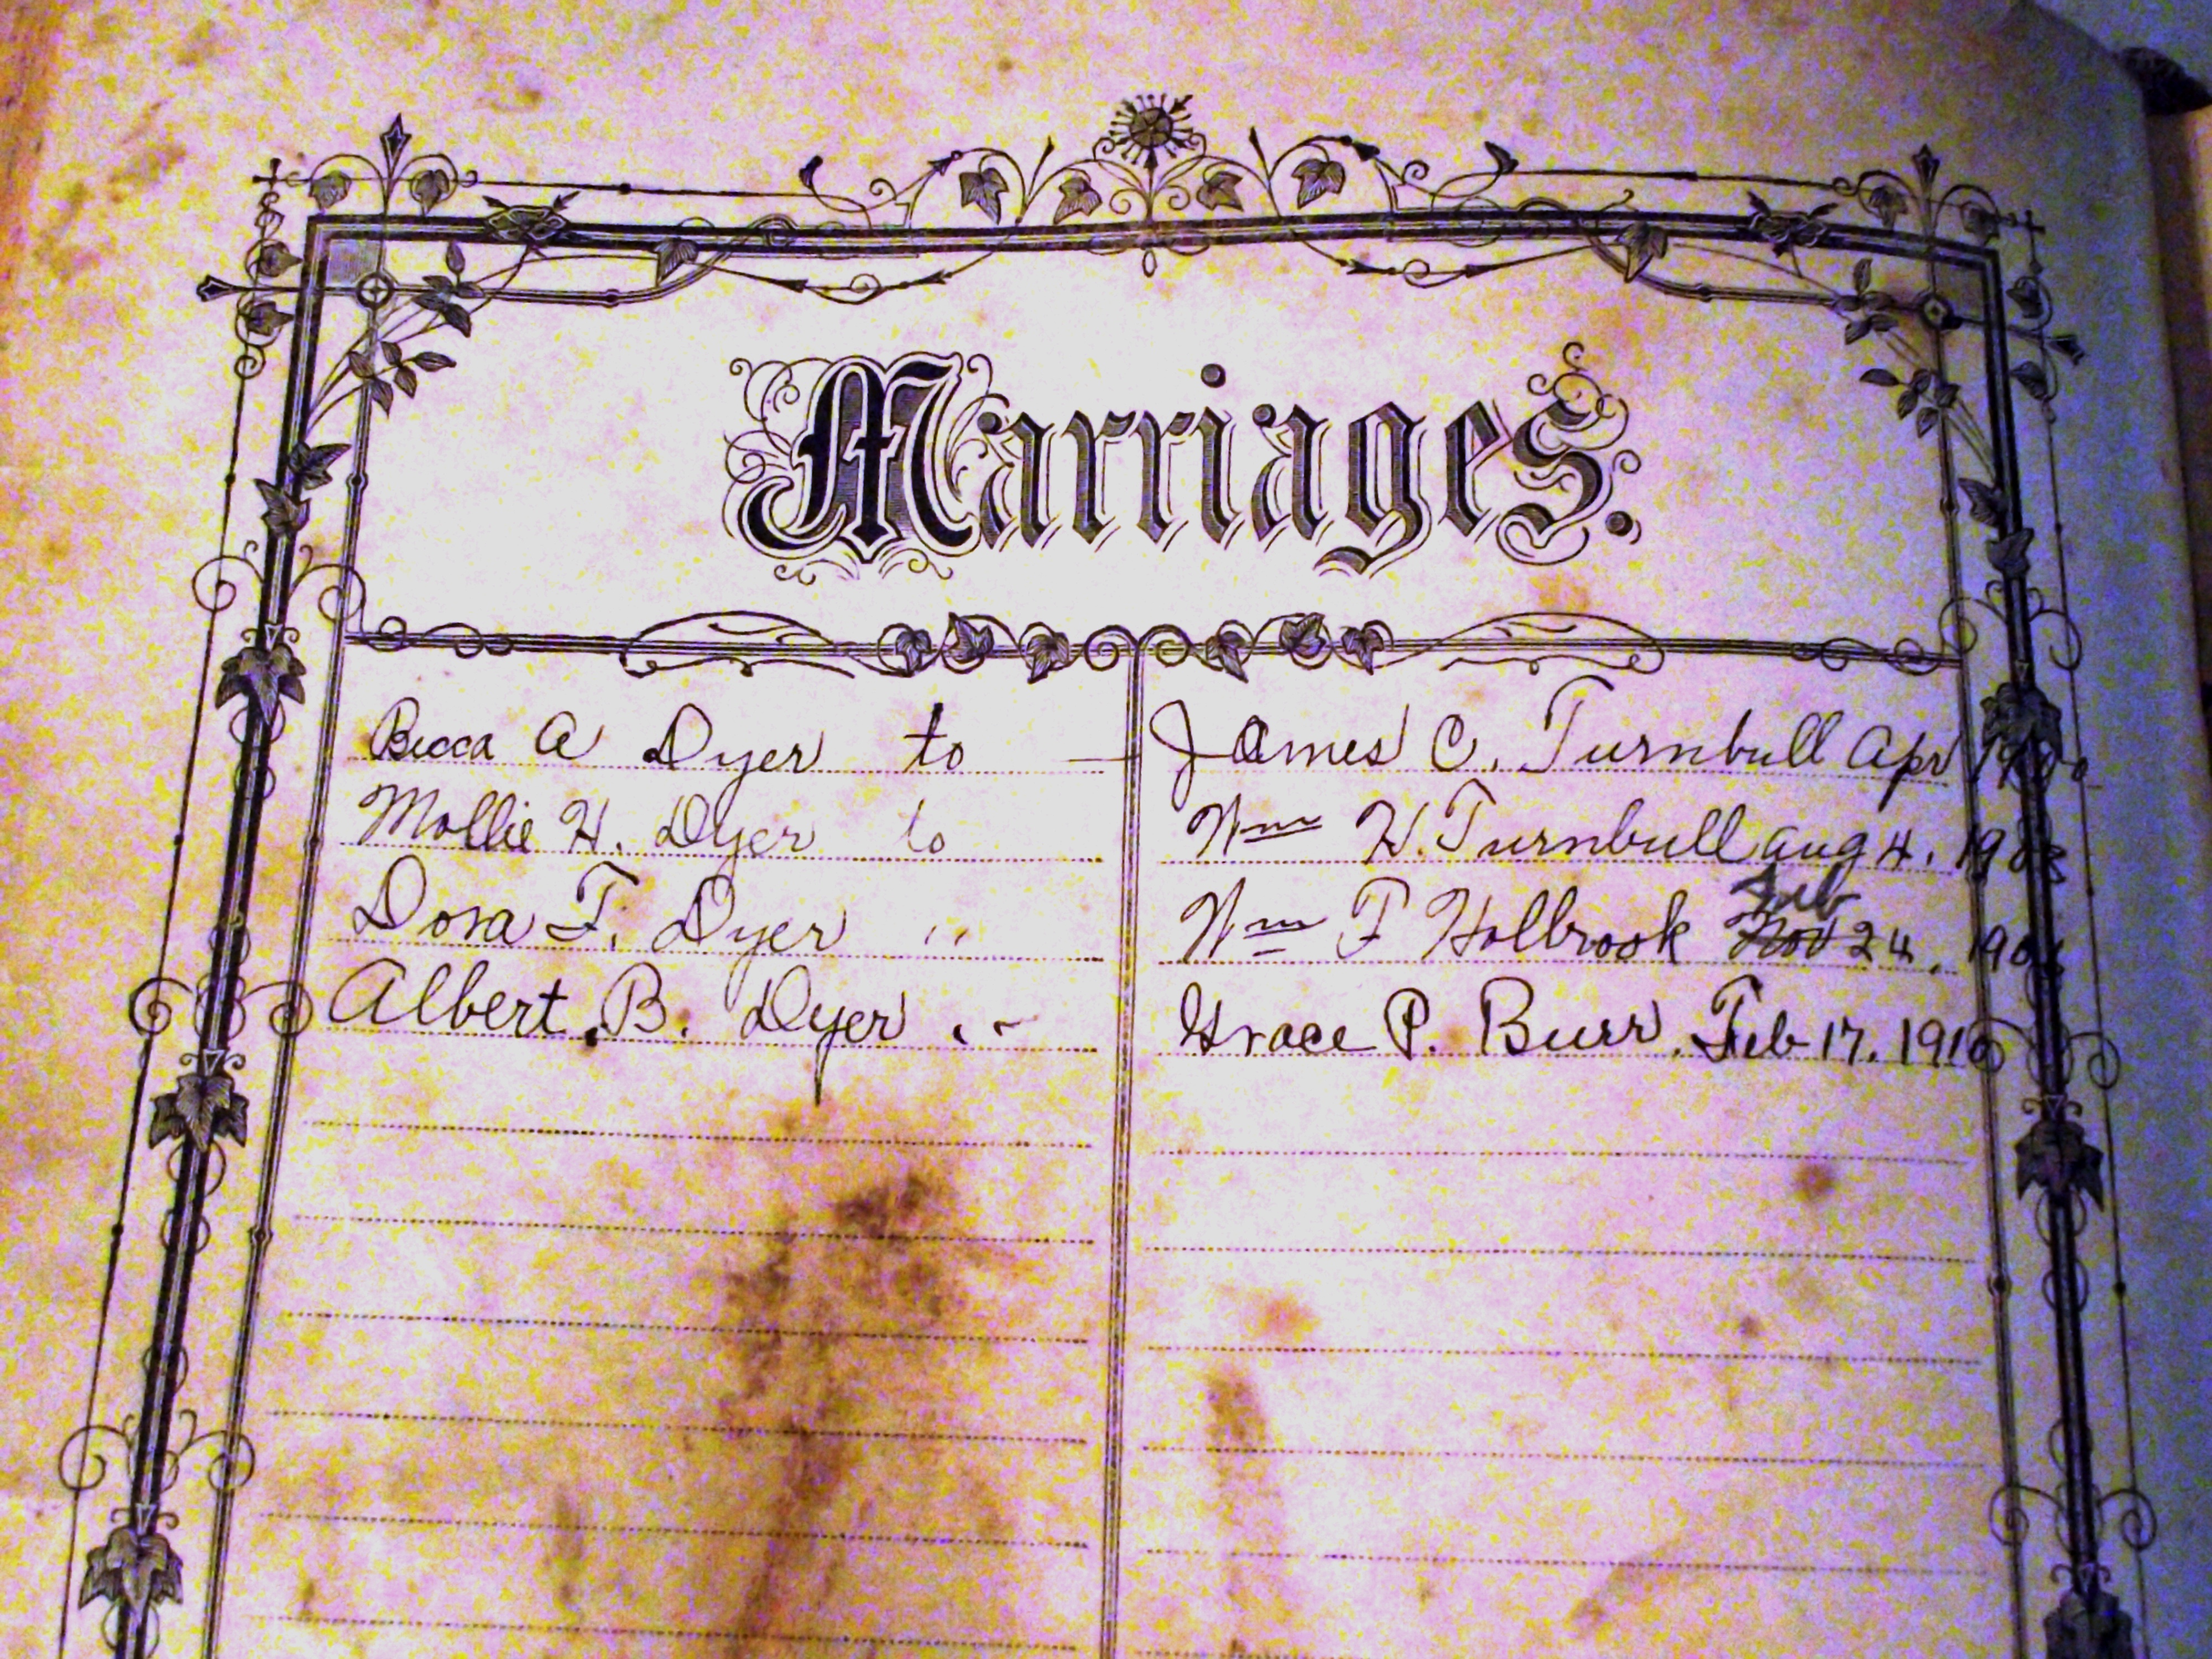 Marriages.
Becca A Dyer to — James C. Turnbull Apr
Mollie H. Dyer to Wm H. Turnbull Aug 4,
Dora F. Dyer " Wm F Holbrook Feb Nov 24,
Albert B. Dyer " Grace P. Burr, Feb 17, 1910